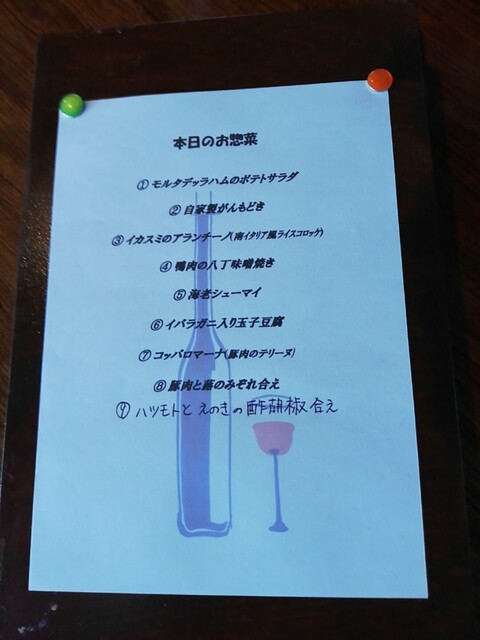 本日のお惣菜
① モルタデッラハムのポテトサラダ
② 自家製がんもどき
③ イカスミのアランチーノ(南イタリア風ライスコロッケ)
④ 鴨肉の八丁味噌焼き
⑤ 海老シューマイ
⑥ イバラガニ入り玉子豆腐
⑦ コッパロマーナ(豚肉のテリーヌ)
⑧ 豚肉と蕗のみぞれ合え
⑨ ハツモトとえのきの酢胡椒合え